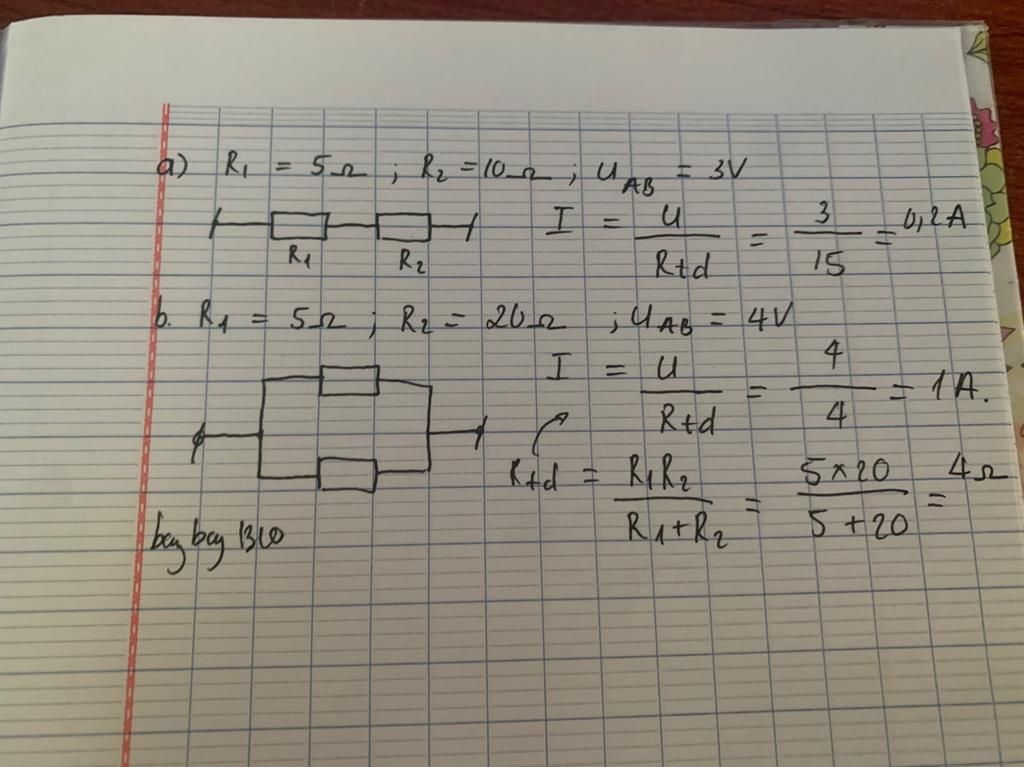 a) R₁ = 5Ω ; R₂ = 10Ω ; U_AB = 3V
R₁ R₂
I = U / Rtd = 3 / 15 = 0,2A
b. R₁ = 5Ω ; R₂ = 20Ω ; U_AB = 4V
I = U / Rtd = 4 / 4 = 1A.
Rtd = R₁R₂ / R₁+R₂ = 5×20 / 5+20 = 4Ω